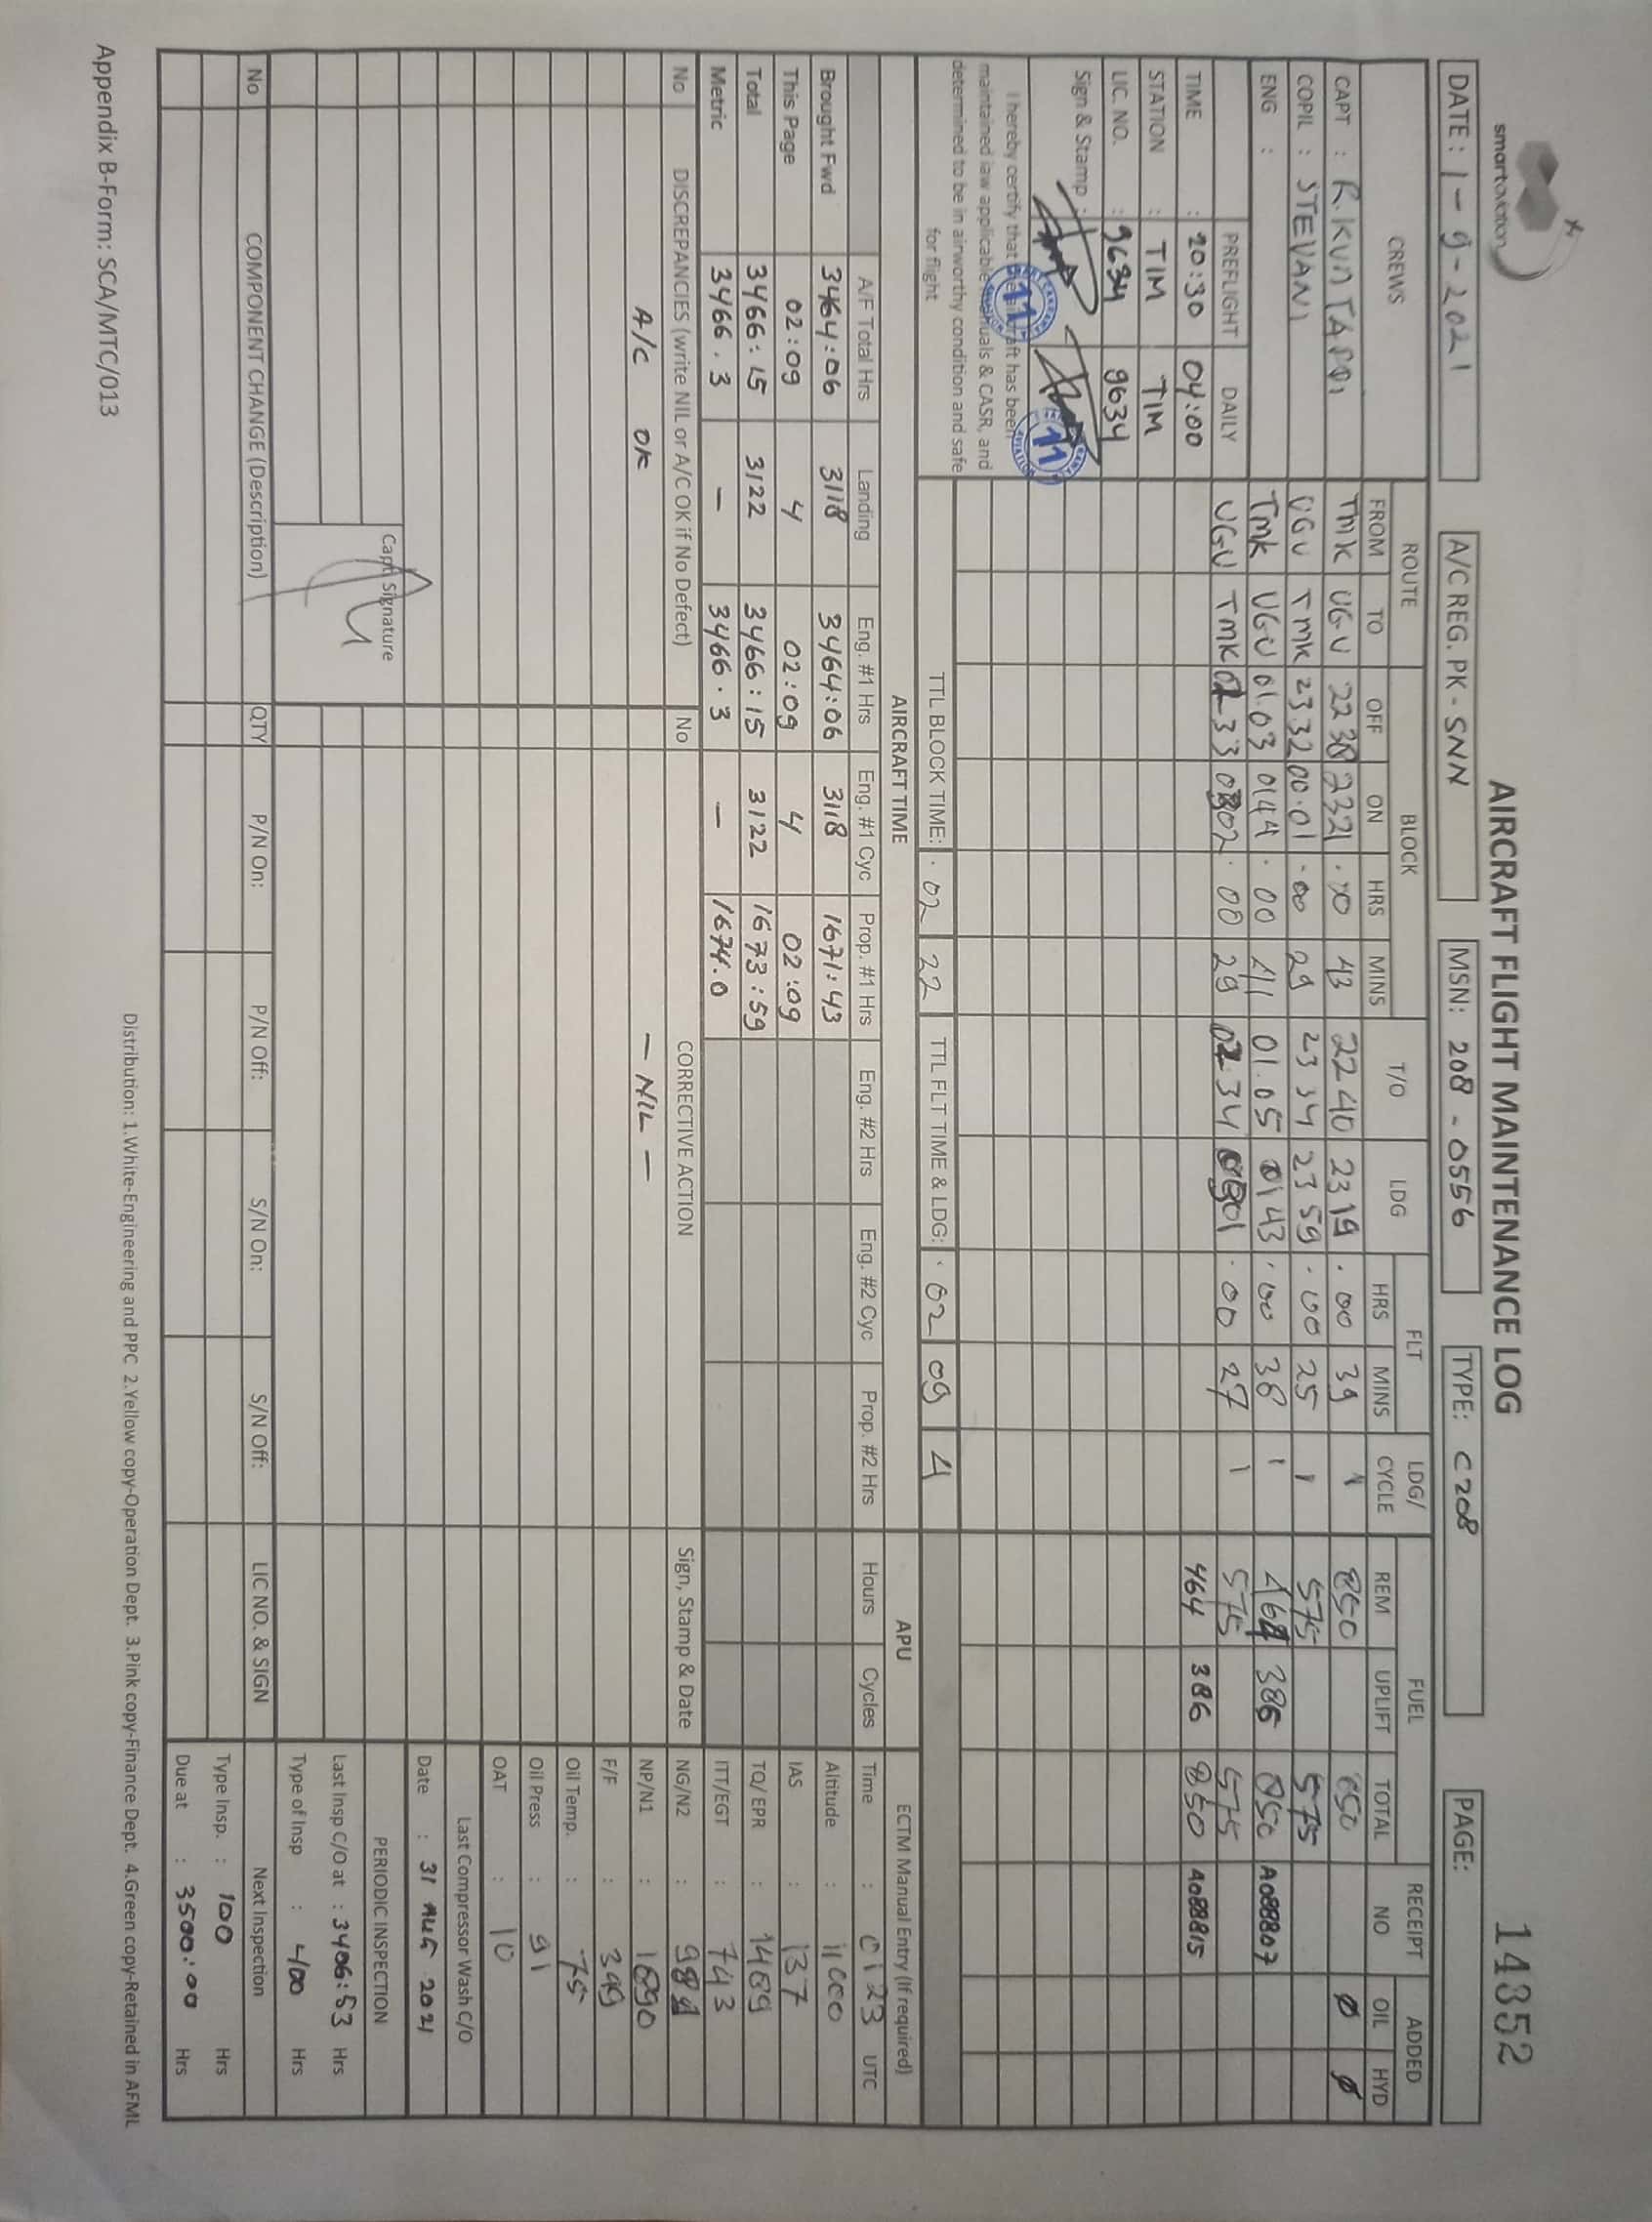 smartaviation
AIRCRAFT FLIGHT MAINTENANCE LOG
14352
DATE : 1-9-2021
A/C REG. PK - SNN
MSN: 208 - 0556
TYPE: C208
PAGE:
CREWS ROUTE BLOCK T/O LDG FLT LDG/ CYCLE FUEL RECEIPT NO ADDED
FROM TO OFF ON HRS MINS HRS MINS REM UPLIFT TOTAL OIL HYD
CAPT : TMK UGU 2230 2321 . 43 22 40 23 19 . 00 39 1 850 850 Ø Ø
COPIL : STEVANI UGU TMK 2332 00.01 . 00 29 23 34 23 59 . 00 25 1 575 575
ENG : TMK UGU 01.03 0144 . 00 41 01.05 01 43 . 00 38 1 464 386 850 A088807
PREFLIGHT DAILY UGU TMK 02 33 0302 . 00 29 02 34 0301 . 00 27 1 575 575
TIME : 20:30 04:00 464 386 850 A088815
STATION : TIM TIM
LIC. NO. : 9634 9634
Sign & Stamp : 11 11
I hereby certify that the aircraft has been
maintained iaw applicable manuals & CASR, and
determined to be in airworthy condition and safe
for flight
TTL BLOCK TIME: . 02 22 TTL FLT TIME & LDG: . 02 09 4
AIRCRAFT TIME APU ECTM Manual Entry (If required)
A/F Total Hrs Landing Eng. #1 Hrs Eng. #1 Cyc Prop. #1 Hrs Eng. #2 Hrs Eng. #2 Cyc Prop. #2 Hrs Hours Cycles Time : 0123 UTC
Brought Fwd 3464:06 3118 3464:06 3118 1671:43 Altitude : 11000
This Page 02:09 4 02:09 4 02:09 IAS : 137
Total 3466:15 3122 3466:15 3122 1673:59 TQ/ EPR : 1469
Metric 3466.3 — 3466.3 — 1674.0 ITT/EGT : 743
No DISCREPANCIES (write NIL or A/C OK if No Defect) No CORRECTIVE ACTION Sign, Stamp & Date NG/N2 :
A/C OK - NIL - NP/N1 : 1690
F/F : 349
Oil Temp. : 75
Oil Press : 91
OAT : 10
Last Compressor Wash C/O
Date : 31 AUG 2021
Capt. Signature
PERIODIC INSPECTION
Last Insp C/O at : 3406:53 Hrs
Type of Insp : 400 Hrs
No COMPONENT CHANGE (Description) QTY P/N On: P/N Off: S/N On: S/N Off: LIC NO. & SIGN Next Inspection
Type Insp. : 100 Hrs
Due at : 3500:00 Hrs
Distribution: 1.White-Engineering and PPC 2.Yellow copy-Operation Dept. 3.Pink copy-Finance Dept. 4.Green copy-Retained in AFML
Appendix B-Form: SCA/MTC/013